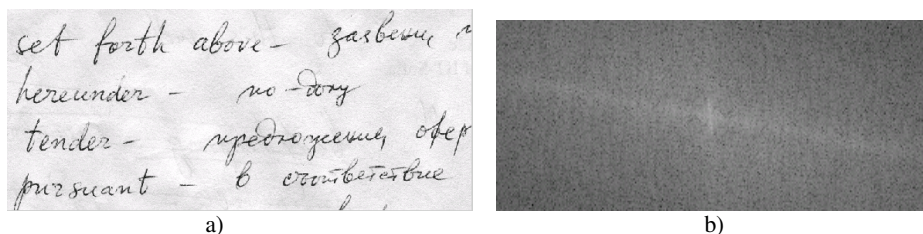 set forth above –
hereunder – по-долу
tender – предложение, офер
pursuant – в съответствие
a) b)